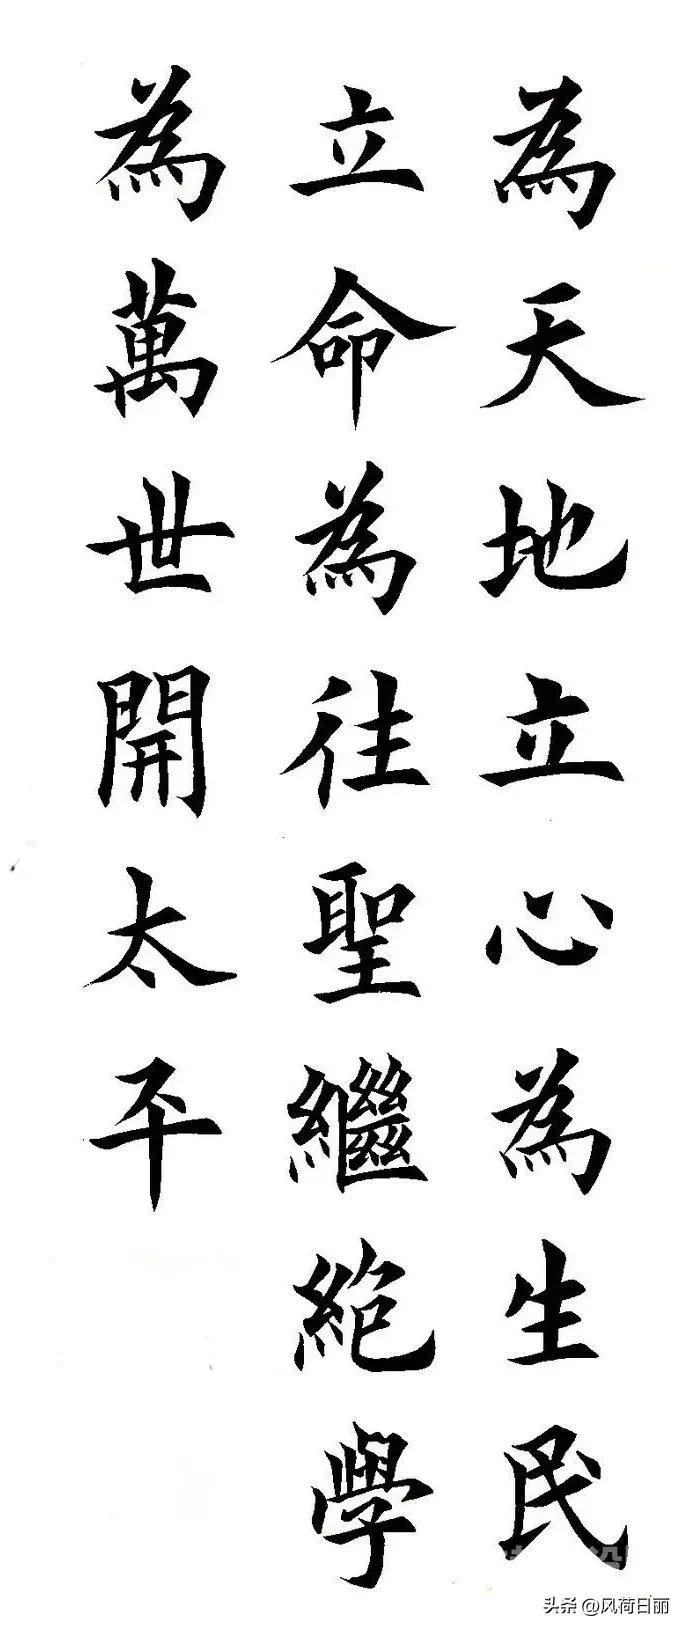 為天地立心為生民
立命為往聖繼絕學
為萬世開太平
头条 @风荷日丽